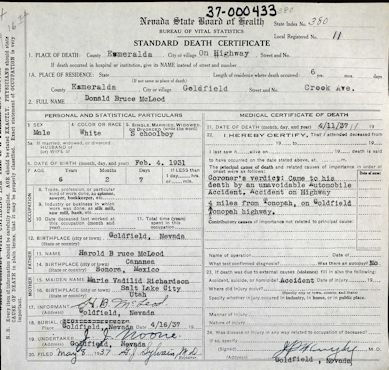 37-000433
Nevada State Board of Health
BUREAU OF VITAL STATISTICS
State Index No. 380
STANDARD DEATH CERTIFICATE
Local Registered No. 11
1. PLACE OF DEATH: County Esmeralda City or village On Highway Street and No.
If death occurred in hospital or institution, give its NAME instead of street and number
1A. PLACE OF RESIDENCE: State Length of residence where death occurred: 6 yrs. mos. days
(If not same as place of death)
County Esmeralda City or village Goldfield Street and No. Crook Ave.
2. FULL NAME Donald Bruce McLeod
PERSONAL AND STATISTICAL PARTICULARS
MEDICAL CERTIFICATE OF DEATH
3. SEX 4. COLOR OR RACE 5. Single, Married, Widowed, or Divorced (write the word)
Male White Schoolboy
21. DATE OF DEATH (month, day, and year) 4/11/37
22. I HEREBY CERTIFY, That I attended deceased from
5a. If married, widowed, or divorced
HUSBAND of
(or) WIFE of
I last saw h alive on death is said
to have occurred on the date stated above, at m.
The principal cause of death and related causes of importance in order of
onset were as follows:
6. DATE OF BIRTH (month, day, and year) Feb. 4, 1931
7. AGE Years Months Days If LESS than
6 2 7
Coroner's verdict: Came to his
death by an unavoidable Automobile
Accident, Accident on Highway
4 miles from Tonopah, on Goldfield
Tonopah highway.
8. Trade, profession, or particular
kind of work done, as spinner,
sawyer, bookkeeper, etc.
9. Industry or business in which
work was done, as silk mill,
saw mill, bank, etc.
10. Date deceased last worked at
this occupation (month and
year)
11. Total time (years)
spent in this
occupation
Contributory causes of importance not related to principal cause:
12. BIRTHPLACE (city or town) Goldfield, Nevada
(State or country)
13. NAME Harold Bruce McLeod
14. BIRTHPLACE (city or town) Cananea
(State or country) Sonora, Mexico
What test confirmed diagnosis? Was there an autopsy? No
23. If death was due to external causes (violence) fill in also the following:
Accident, suicide, or homicide? Accident Date of injury
15. MAIDEN NAME Marie Vadilid Richardson
16. BIRTHPLACE (city or town) Salt Lake City
(State or country) Utah
Where did injury occur?
(Specify city or town, county, and State)
Specify whether injury occurred in industry, in home, or in public place.
17. H B McLeod
Goldfield, Nevada
Manner of injury
Nature of injury
18. BURIAL
Goldfield, Nevada 4/16/37
24. Was disease or injury in any way related to occupation of deceased?
If so, specify
19. J. J. Moore
Goldfield, Nevada
20. FILED May 8 1937
Goldfield, Nevada